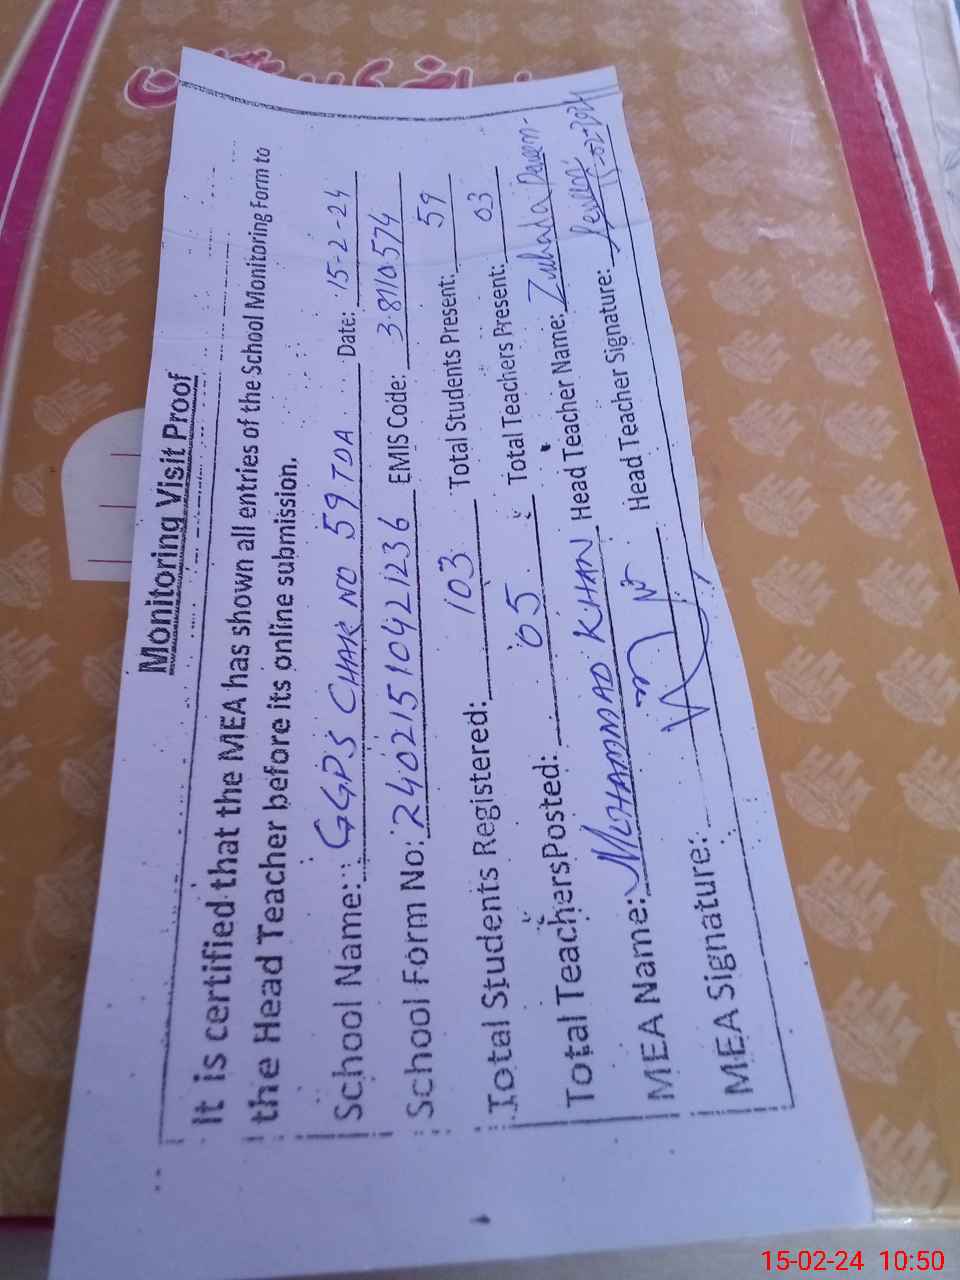 Monitoring Visit Proof
It is certified that the MEA has shown all entries of the School Monitoring Form to
the Head Teacher before its online submission.
School Name: GGPS CHAK NO 59 TDA Date: 15-2-24
School Form No: 24021510421236 EMIS Code: 38110574
Total Students Registered: 103 Total Students Present: 59
Total Teachers Posted: 05 Total Teachers Present: 03
MEA Name: MUHAMMAD KHAN Head Teacher Name:
MEA Signature: Head Teacher Signature:
15-02-2024
15-02-24 10:50